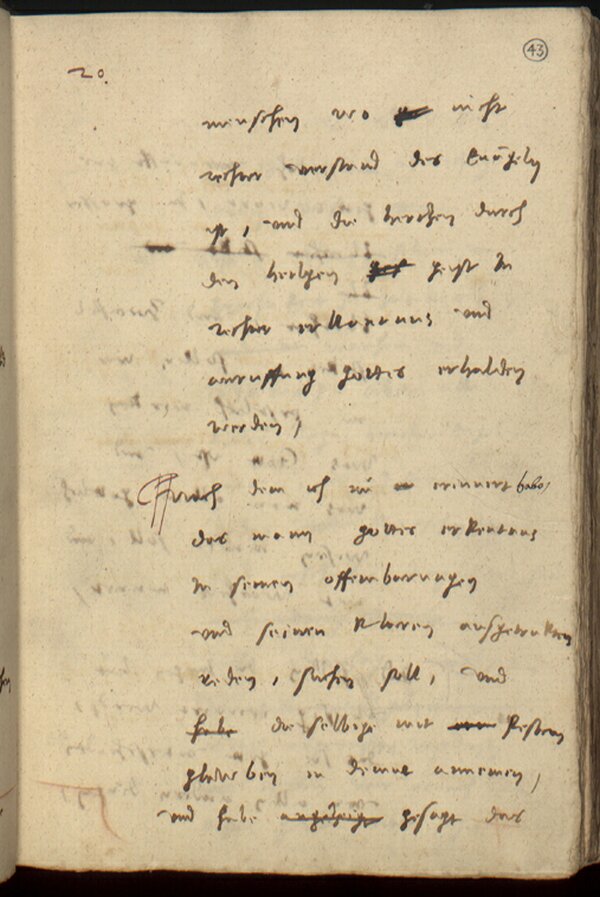 43
20.
menschen wo nicht
rechter verstand des Euangelij
ist, und die hertzen durch
den heilgen geist in
rechter erkantnus und
anruffung gottes erhalden
werden,
Nach dem ich nu erinnert habe,
das mann gottes erkentnus
in seinen offembarungen
und seinen klaren ausgetrukten
reden, suchen soll, und
habe dieselbige mit festem
glawben in demut annemen,
und habe angezeigt gesagt das